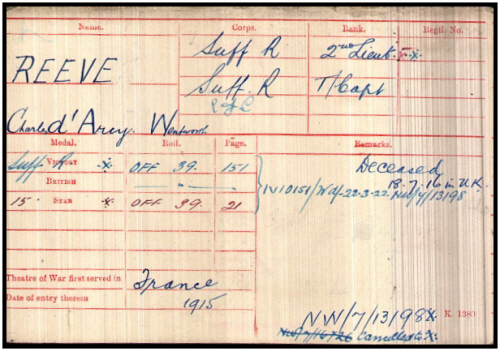 Name. Corps. Rank. Regtl. No.
REEVE Suff R 2nd Lieut. x.
Suff. R T/Capt
R of C
Charles d'Arcy. Wentworth
Medal. Roll. Page. Remarks.
Victory Suff R x. OFF 39. 151 Deceased
British - " - 18.7.16 in U.K.
IV10151/Wd/22-3-22. NW/7/13198
15 Star x. OFF 39. 21
Theatre of War first served in France
Date of entry therein 1915
NW/7/13198 x. K. 1380
Cancelled x.